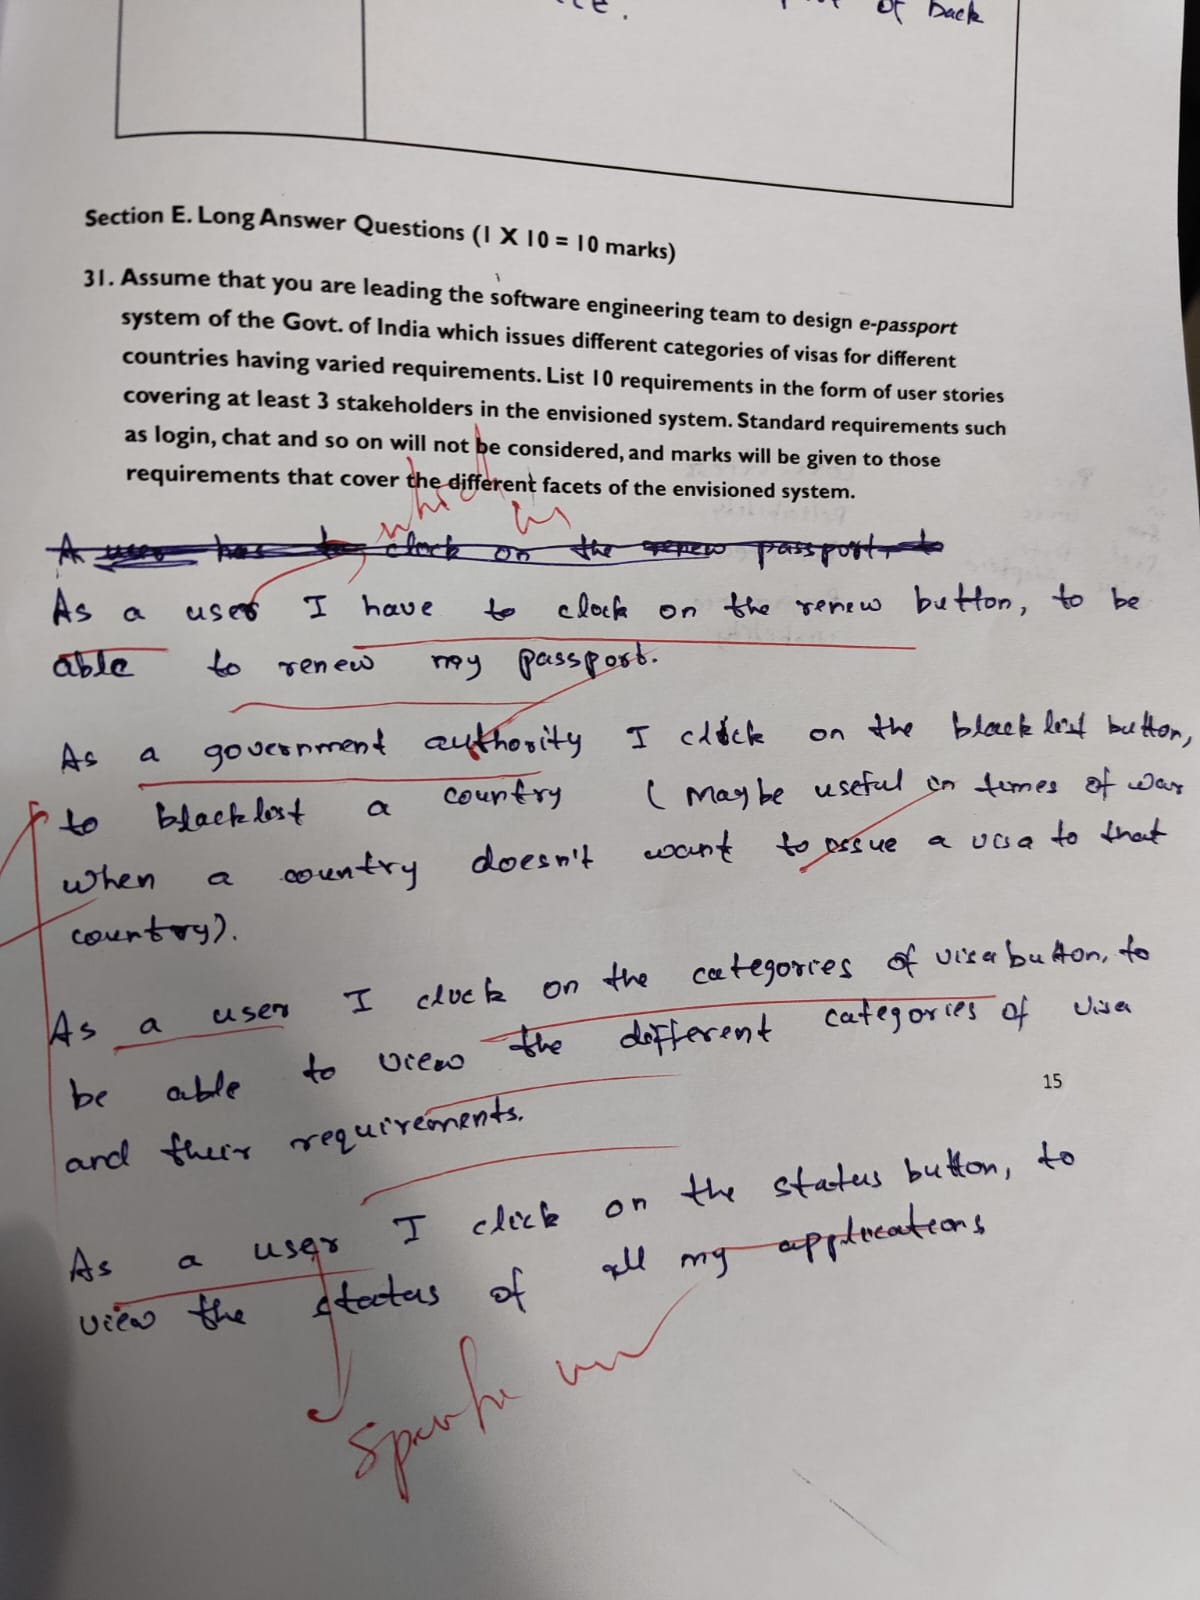 of back
Section E. Long Answer Questions (1 X 10 = 10 marks)
31. Assume that you are leading the software engineering team to design e-passport
system of the Govt. of India which issues different categories of visas for different
countries having varied requirements. List 10 requirements in the form of user stories
covering at least 3 stakeholders in the envisioned system. Standard requirements such
as login, chat and so on will not be considered, and marks will be given to those
requirements that cover the different facets of the envisioned system.
which
A user has to click on the renew passport, to
As a user I have to click on the renew button, to be
able to renew my passport.
As a government authority I click on the blacklist button,
to blacklist a country (Maybe useful in times of war
when a country doesn't want to issue a visa to that
country).
As a user I click on the categories of visa button, to
be able to view the different categories of visa
and their requirements.
15
As a user I click on the status button, to
view the status of all my applications